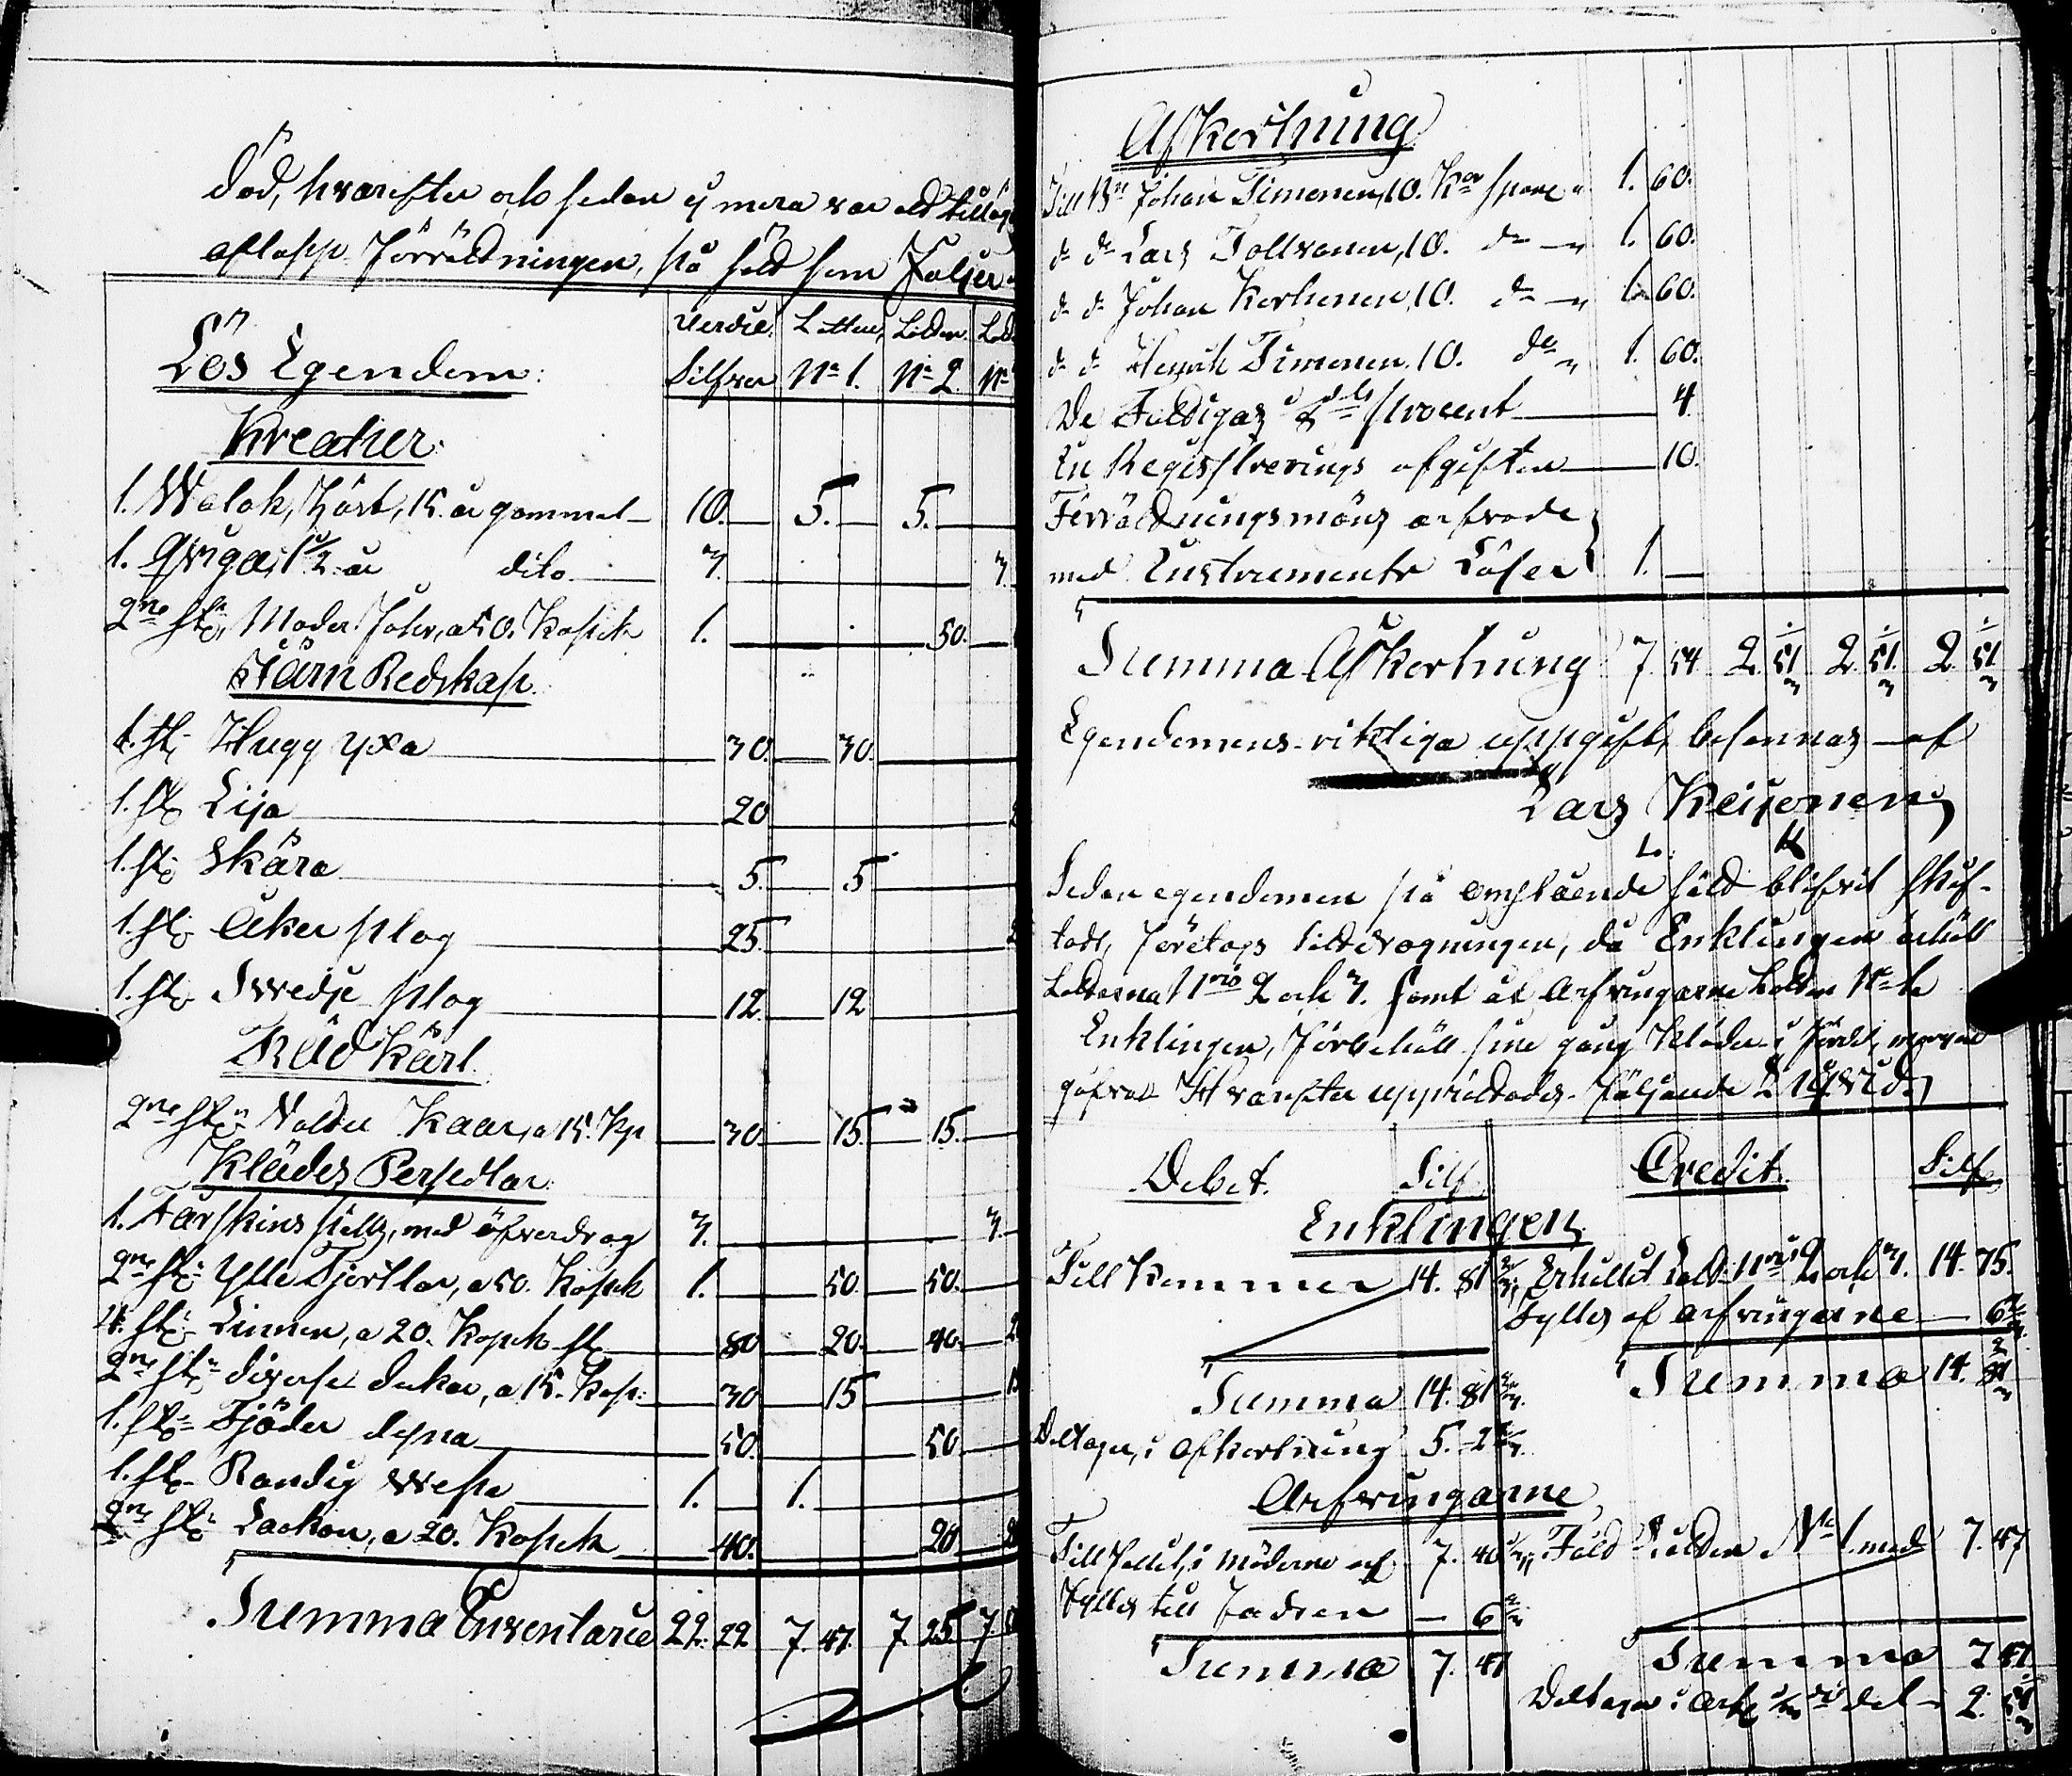 död, hvarefter och sedan ej mera var att tillägga
aflopp förrättningen, på sätt som följer
Lös Egendom: Värde Silfver Lotten No 1. Lotten No 2. No
Kreatur:
1. Walak, häst, 15. år gammal 10. 5. 5.
1. Qviga, 1 1/2 år dito 3. 3.
2ne st. Moder Får, a 50. Kopek 1. 50.
Järn Redskap.
1. st. Hugg yxa 30. 30.
1. st. Lija 20
1. st. Skära 5. 5
1. st. Åker plog 25.
1. st. Svedje plog 12. 12
Träd Kärl.
2ne st. Kaar, a 15. Kp 30. 15. 15.
Klädes Persedlar
1. Fårskins fäll, med öfverdrag 3. 3.
2ne st. Ylle Tjortlar, a 50. Kopek 1. 50. 50.
4. st. Linnen, a 20. Kopek st. 80 20. 40. 2
2ne st. diverse dukar, a 15. Kop: 30 15
1. st. Fjäder dyna 50. 50
1. st. Randig 1. 1.
2ne st. Lackan, a 20. Kopek 40. 20
Summa Inventarie 22. 22 7. 47. 7. 25. 7.
Afkortning
Till Bn Johan Timonen, 10. 1. 60.
do do Lars Tollvanen, 10. do 1. 60.
do do Johan Korhonen, 10. do 1. 60.
do do Henrik Timonen. 10. do 1. 60.
De Fattigas procent 4
En Registrerings afgiften 10.
Förrättningsmäns arfvode
med Instruments Lösen 1.
Summa Afkortning 7. 54 2. 51 2. 51. 2. 51
Egendomens riktiga uppgift, besannas af
Lars Keijonen
L. K
Sedan egendomen på omstående sätt blifvit skif-
tadt, företogs lottdragningen, då Enklingen erhöll
Lotterna Nris 2 och 3. samt åt Arfvingarne Lotten No 1
Enklingen, förbehöll sine gång kläder i
Hvarefter upprättades följande Liqvid.
Debet. Silf. Credit. Silf
Enklingen
Till kommer 14. 81 Erhållit Lott Nris 2 och 3. 14. 75.
Fylles af arfvingarne 6
Summa 14. 81 Summa 14. 81
Deltager, i afkortning 5. 2
Arfvingarne
Tillfallit, i möderne arf 7. 40 Lotten No 1 med 7. 47
Fylles till Fadren 6
Summa 7. 47 Summa 7 47
Deltager i del 2. 51